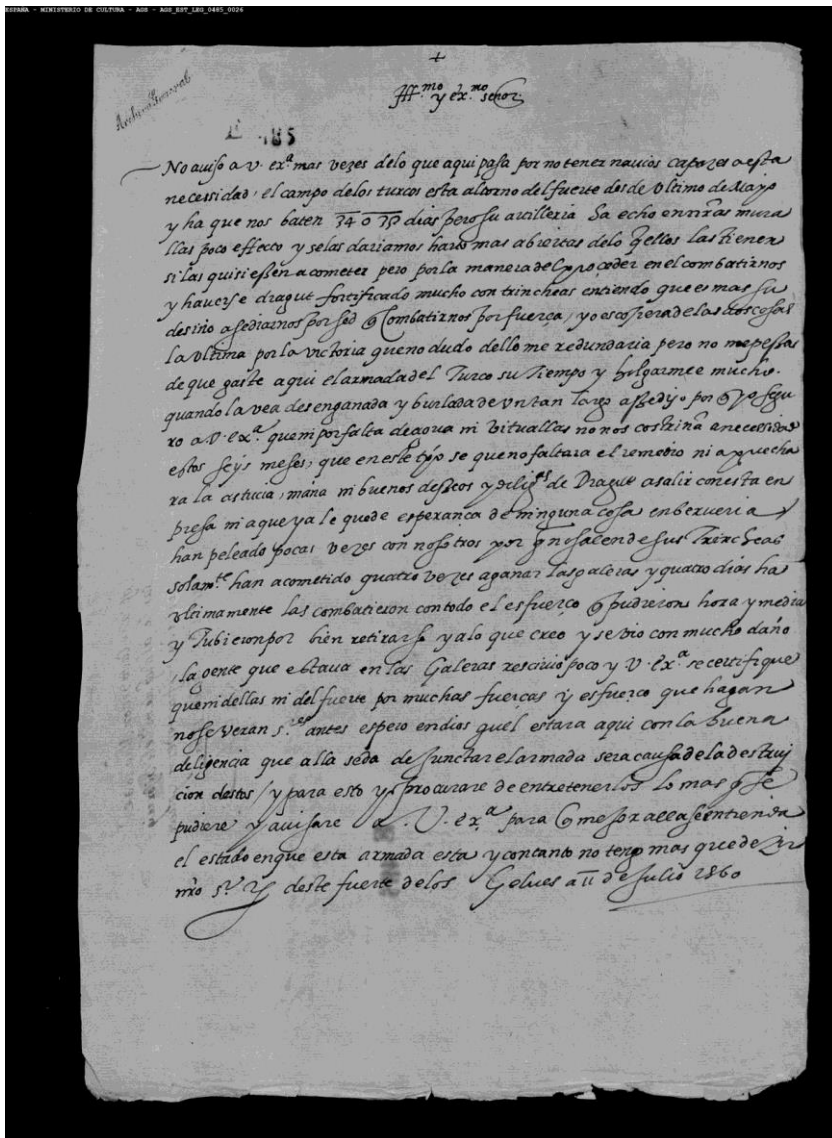 ESPAÑA - MINISTERIO DE CULTURA - AGS - AGS_EST_LEG_0485_0026
+
Archivo General
Ill.mo y ex.mo señor.
485
No auiso a v. ex.a mas vezes delo que aqui pasa por no tener nauios capazes a esta
necessidad, el campo delos turcos esta al torno del fuerte desde vltimo de Mayo
y ha que nos baten 34 o 35 dias pero su artilleria ha echo en nras mura
llas poco effecto y selas dariamos harto mas abiertas delo q ellos las tienen
si las quisiessen acometer pero por la manera del proceder en el combatirnos
y hauerse dragut fortificado mucho con trincheas entiendo que es mas su
desiño asediarnos por sed q Combatirnos por fuerça, yo escogiera de las dos cosas
la vltima por la victoria que no dudo dello me redundaria pero no me pessa
de que gaste aqui el armada del Turco su tiempo y holgarme e mucho.
quando la vea desenganada y burlada de vn tan largo assedyo por q yo segu
ro a V. ex.a que ni por falta de agua ni vituallas no nos costriñira necessidad
estos seys meses, que en este tpo se que no faltara el remedio ni aprouecha
ra la astucia, maña ni buenos desseos y dilig.as de Dragut a salir con esta en
presa ni a que ya le quede esperança de ninguna cosa en berueria
han peleado pocas vezes con nosotros por q no salen de sus trincheas
solam.te han acometido quatro vezes a ganar las galeras y quatro dias ha
vltimamente las combatieron con todo el esfuerço q pudieron hora y media
y tubieron por bien retirarse y a lo que creo y se vio con mucho daño
la gente que estaua en las Galeras resciuio poco y V. ex.a se certifique
que ni dellas ni del fuerte por muchas fuerças y esfuerço que hagan
no se veran s.res antes espero en dios quel estara aqui con la buena
deligencia que alla se da de junctar el armada sera causa de la destruy
cion destos / y para esto yo procurare de entretenerlos lo mas q se
pudiere y auisare a V. ex.a para q mejor alla se entienda
el estado en que esta armada esta y con tanto no tengo mas que dezir
nro s.r deste fuerte delos Gelues a 11 de Julio 1560